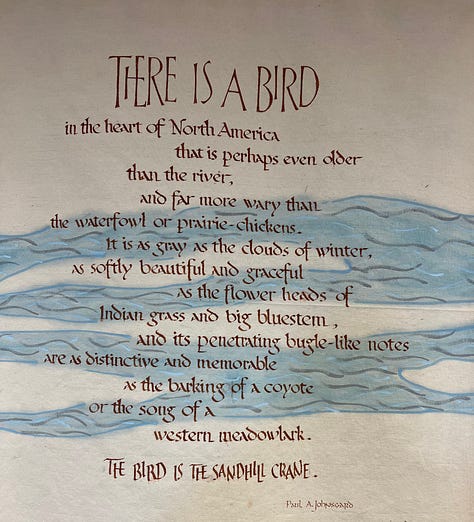 THERE IS A BIRD
in the heart of North America
that is perhaps even older
than the river,
and far more wary than
the waterfowl or prairie-chickens.
It is as gray as the clouds of winter,
as softly beautiful and graceful
as the flower heads of
Indian grass and big bluestem,
and its penetrating bugle-like notes
are as distinctive and memorable
as the barking of a coyote
or the song of a
western meadowlark.
THE BIRD IS THE SANDHILL CRANE.
Paul A. Johnsgard